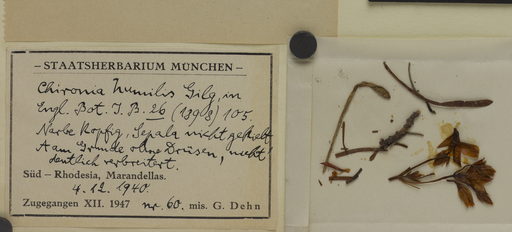 – STAATSHERBARIUM MÜNCHEN –
Chironia humilis Gilg, in
Engl. Bot. J. B. 26 (1898) 105.
Narbe kopfig, Sepala nicht gekielt
am Grunde ohne Drüsen, nicht
deutlich verbreitert.
Süd – Rhodesia, Marandellas.
4.12.1940.
Zugegangen XII. 1947 nr. 60. mis. G. Dehn